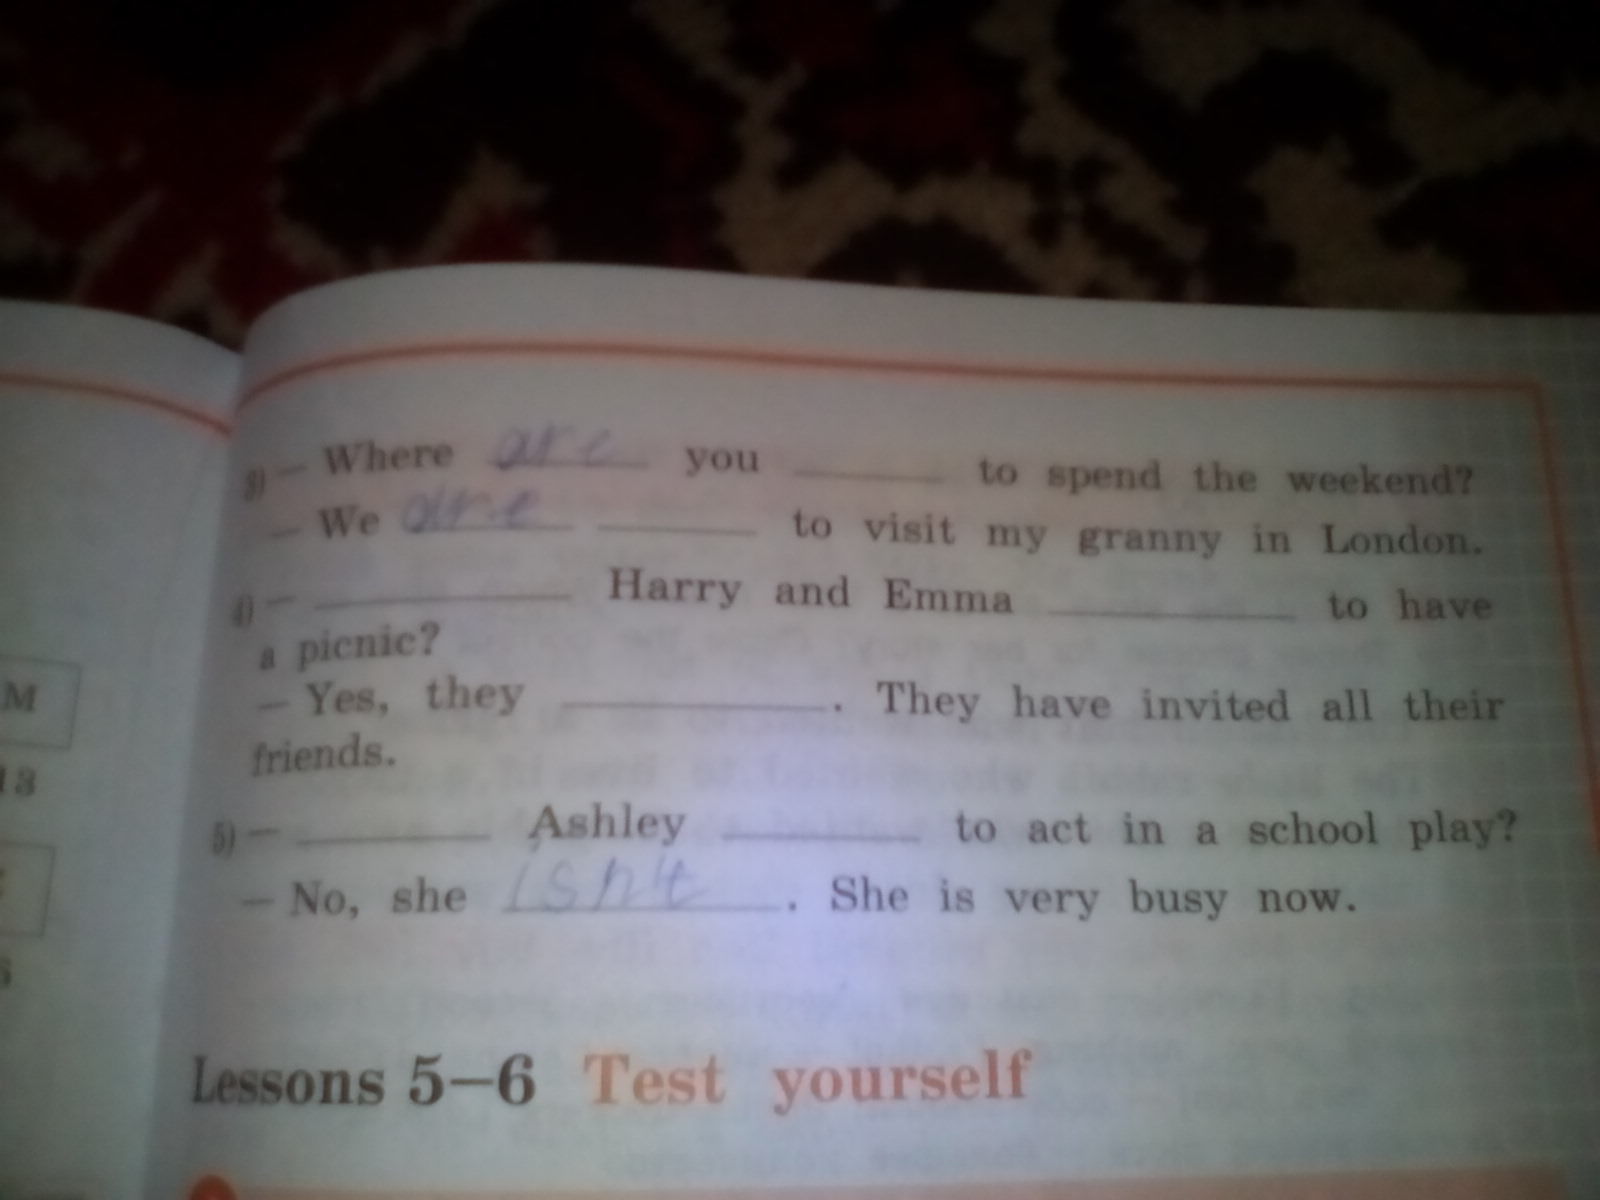 3) — Where are you ______ to spend the weekend?
— We are ______ to visit my granny in London.
4) — ______ Harry and Emma ______ to have
a picnic?
— Yes, they ______. They have invited all their
friends.
5) — ______ Ashley ______ to act in a school play?
— No, she isn't. She is very busy now.
Lessons 5–6 Test yourself
M
13